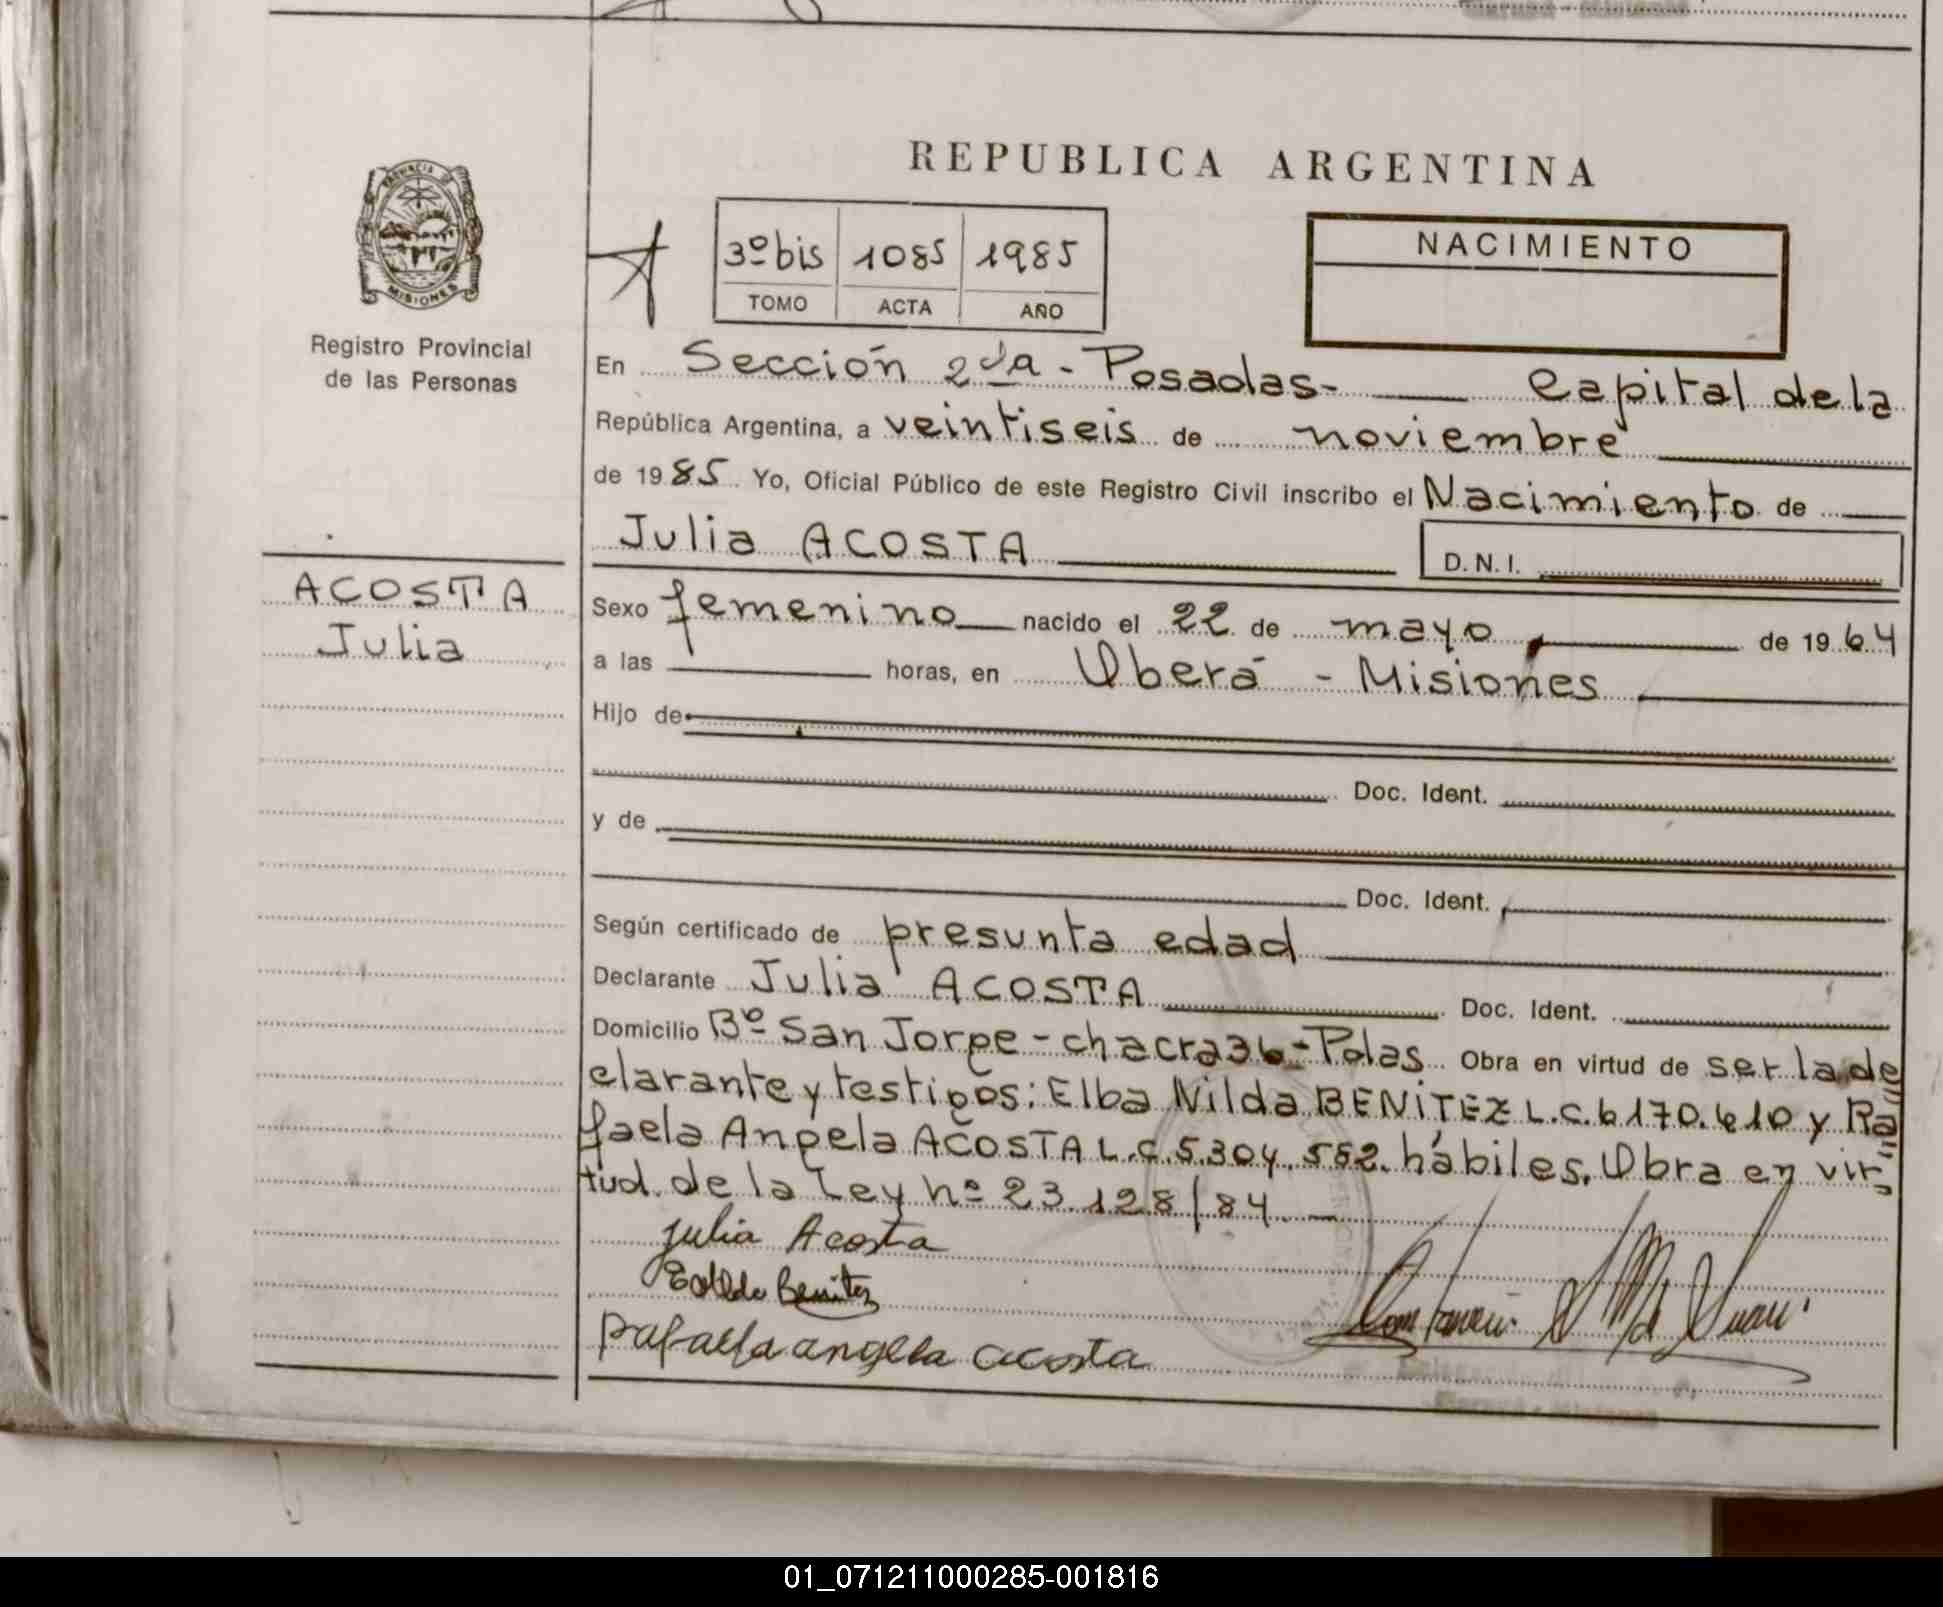 REPUBLICA ARGENTINA
PROVINCIA DE
MISIONES
Registro Provincial
de las Personas
3º bis 1085 1985
TOMO ACTA AÑO
NACIMIENTO
En Sección 2da - Posadas- Capital de la
República Argentina, a veintiseis de noviembre
de 1985 Yo, Oficial Público de este Registro Civil inscribo el Nacimiento de
Julia ACOSTA
D.N.I.
ACOSTA
Julia
Sexo femenino nacido el 22 de mayo de 1964
a las horas, en Oberá - Misiones
Hijo de
Doc. Ident.
y de
Doc. Ident.
Según certificado de presunta edad
Declarante Julia ACOSTA Doc. Ident.
Domicilio Bº San Jorge - chacra 36 - Pdas Obra en virtud de ser la de
clarante y testigos: Elba Nilda BENÍTEZ L.C. 6170.610 y Ra
faela Angela ACOSTA L.C. 5.304.552. hábiles. Obra en vir-
tud de la Ley nº 23.128/84
Julia Acosta
Benitez
Rafaela angela acosta
01_071211000285-001816